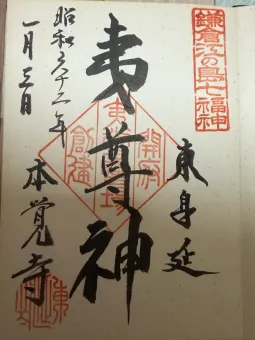 鎌倉江の島七福神
東身延
夷尊神
開府
夷堂
創建
昭和六十二年
一月三日
本覚寺